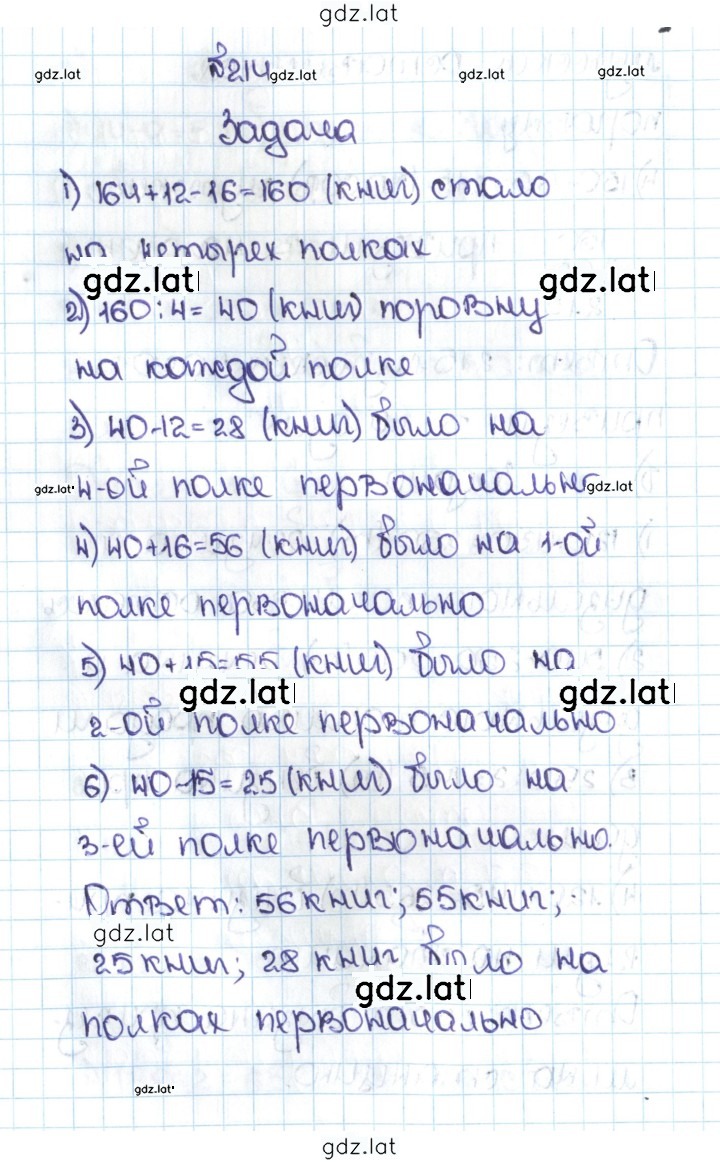 gdz.lat
№214
gdz.lat gdz.lat gdz.lat gdz.lat
Задача
1) 164+12-16=160 (книг) стало
на четырех полках
gdz.lat gdz.lat
2) 160:4= 40 (книг) поровну
на каждой полке
3) 40-12=28 (книг) было на
gdz.lat 4-ой полке первоначально gdz.lat
4) 40+16=56 (книг) было на 1-ой
полке первоначально
5) 40+15=55 (книг) было на
gdz.lat gdz.lat
2-ой полке первоначально
6) 40-15=25 (книг) было на
3-ей полке первоначально.
Ответ: 56 книг; 55 книг;
gdz.lat
25 книг; 28 книг было на
gdz.lat
полках первоначально
gdz.lat
gdz.lat